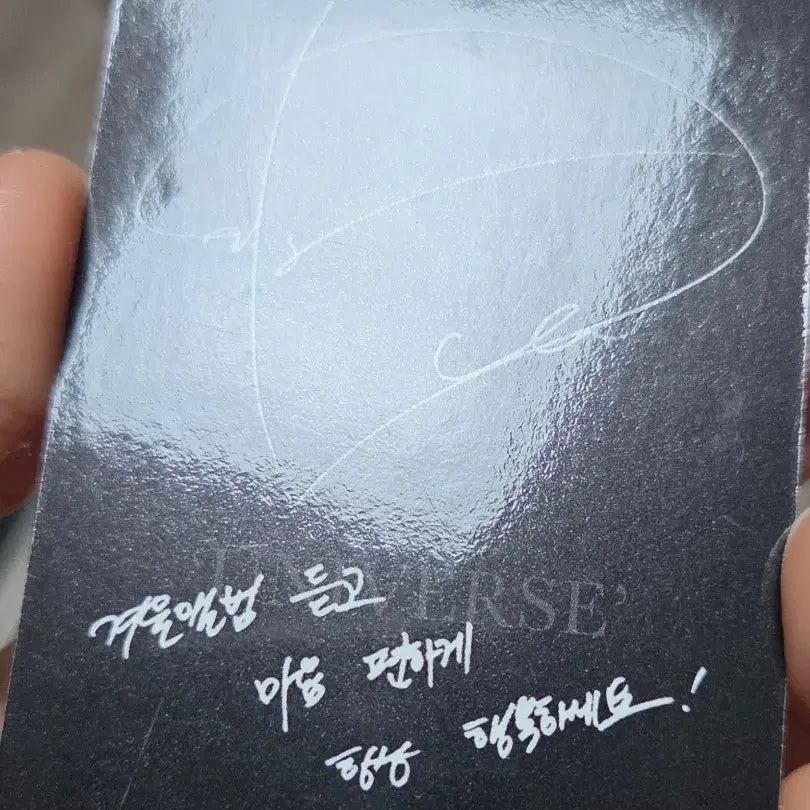 ERSE’
겨울앨범 듣고
마음 편하게
항상 행복하세요!